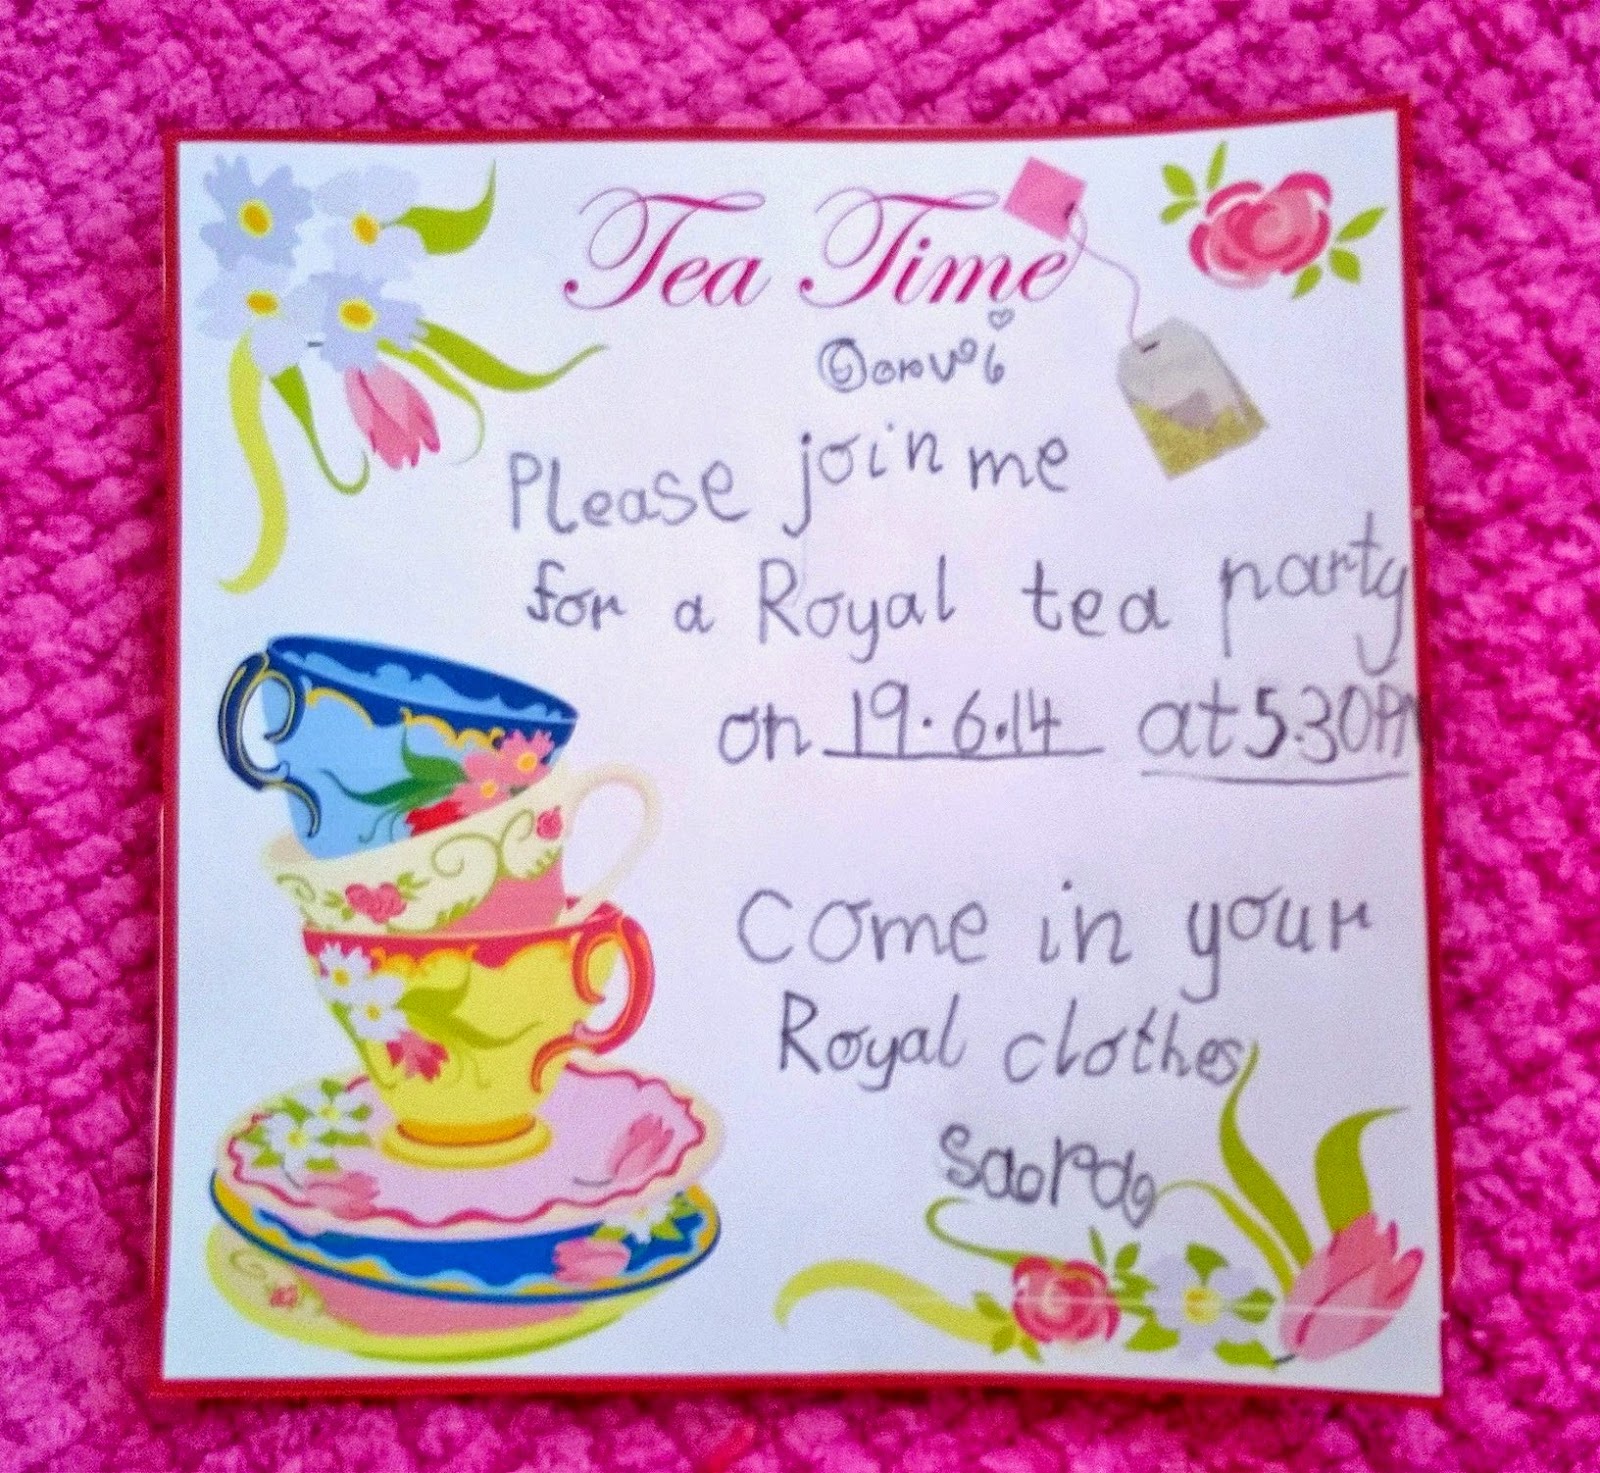 Tea Time
Please join me
for a Royal tea party
on 19.6.14 at 5.30PM
Come in your
Royal clothes